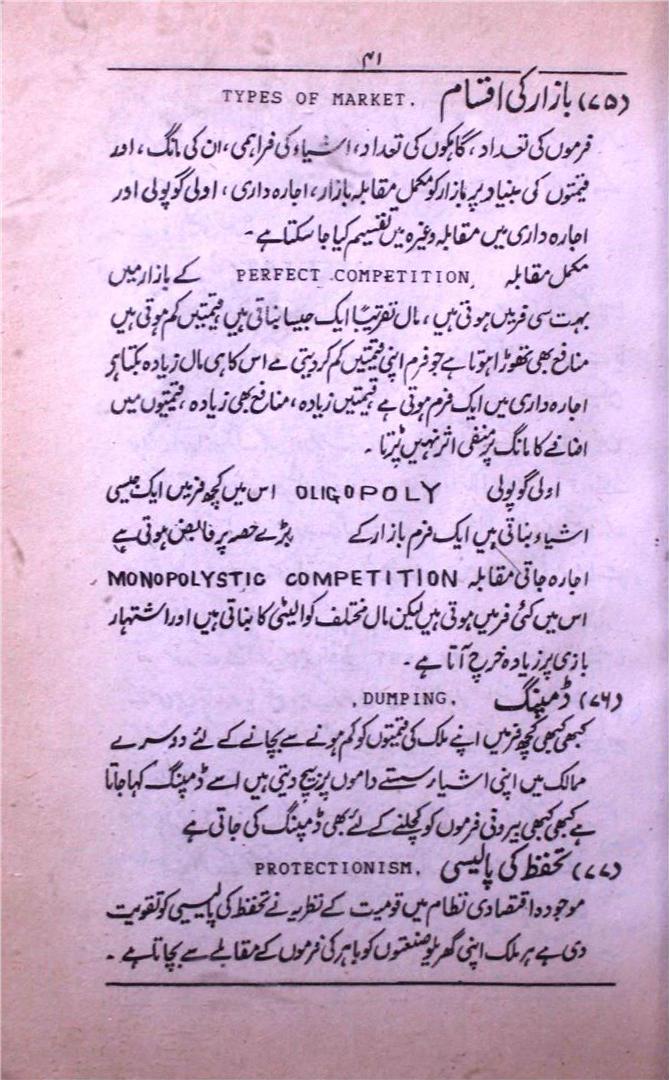 ۴۱
(۷۵) بازار کی اقسام TYPES OF MARKET.
فرموں کی تعداد، گاہکوں کی تعداد، اشیاء کی فراہمی، ان کی مانگ، اور
قیمتوں کی بنیاد پر بازار کو مکمل مقابلہ بازار، اجارہ داری، اولی گوپولی اور
اجارہ داری میں مقابلہ وغیرہ میں تقسیم کیا جا سکتا ہے۔
مکمل مقابلہ PERFECT COMPETITION کے بازار میں
بہت سی فرمیں ہوتی ہیں، مال تقریباً ایک جیسا بناتی ہیں قیمتیں کم ہوتی ہیں
منافع بھی تھوڑا ہوتا ہے جو فرم اپنی قیمتیں کم کر دیتی ہے اس کا ہی مال زیادہ بکتا ہے
اجارہ داری میں ایک فرم ہوتی ہے قیمتیں زیادہ، منافع بھی زیادہ، قیمتوں میں
اضافے کا مانگ پر منفی اثر نہیں پڑتا۔
اولی گوپولی OLIGOPOLY اس میں کچھ فرمیں ایک جیسی
اشیاء بناتی ہیں ایک فرم بازار کے بڑے حصہ پر قابض ہوتی ہے
اجارہ جاتی مقابلہ MONOPOLYSTIC COMPETITION
اس میں کئی فرمیں ہوتی ہیں لیکن مال مختلف کوالیٹی کا بناتی ہیں اور اشتہار
بازی پر زیادہ خرچ آتا ہے۔
(۷۶) ڈمپنگ DUMPING.
کبھی کبھی کچھ فرمیں اپنے ملک کی قیمتوں کو کم ہونے سے بچانے کے لئے دوسرے
ممالک میں اپنی اشیاء سستے داموں پر بیچ دیتی ہیں اسے ڈمپنگ کہا جاتا
ہے کبھی کبھی بیرونی فرموں کو کچلنے کے لئے بھی ڈمپنگ کی جاتی ہے
(۷۷) تحفظ کی پالیسی PROTECTIONISM.
موجودہ اقتصادی نظام میں قومیت کے نظریہ نے تحفظ کی پالیسی کو تقویت
دی ہے ہر ملک اپنی گھریلو صنعتوں کو باہر کی فرموں کے مقابلے سے بچاتا ہے۔